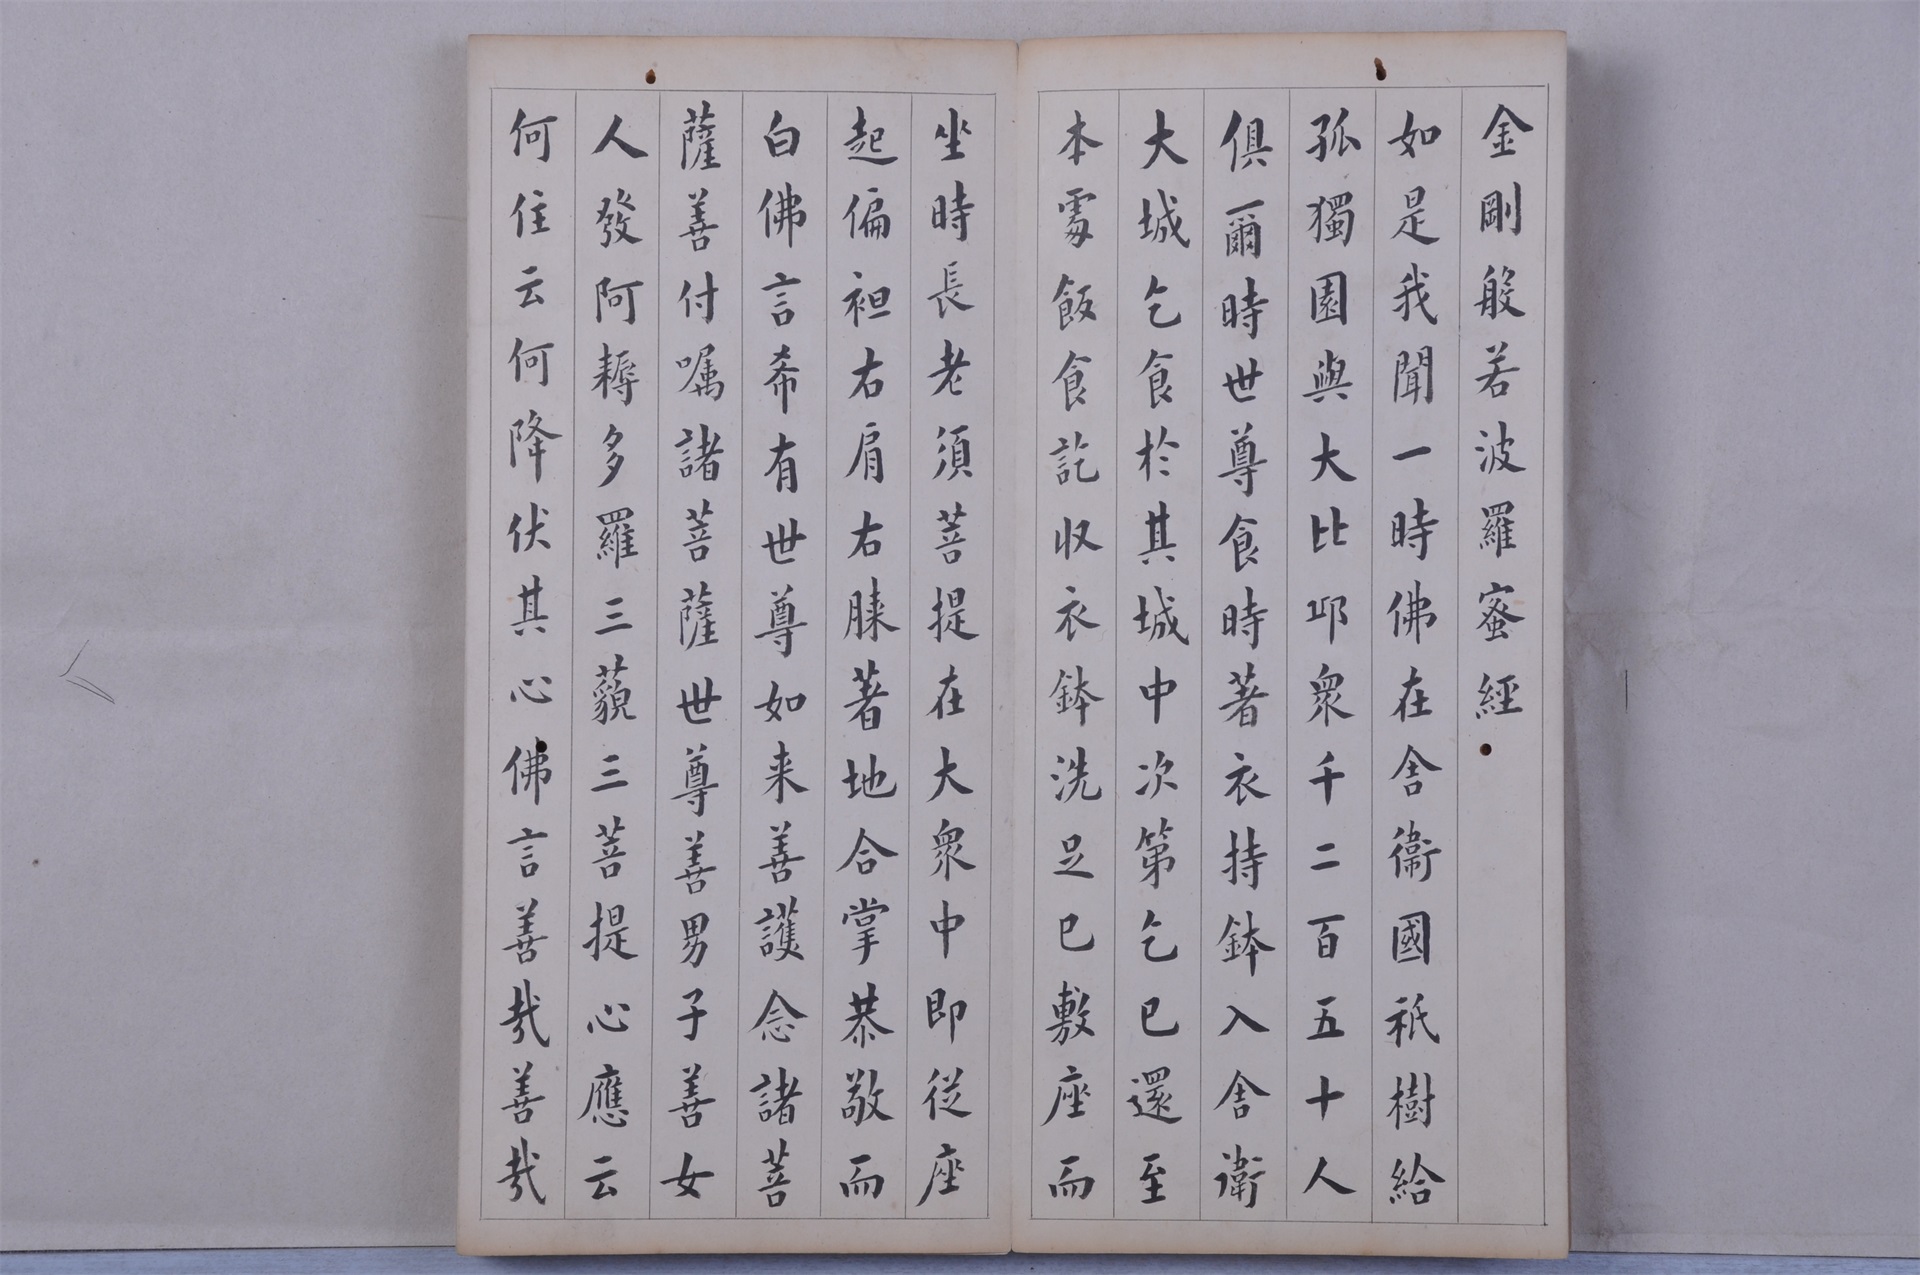 金剛般若波羅蜜經
如是我聞一時佛在舍衞國祇樹給
孤獨園與大比邱衆千二百五十人
俱爾時世尊食時著衣持鉢入舍衞
大城乞食於其城中次第乞已還至
本處飯食訖収衣鉢洗足已敷座而
坐時長老須菩提在大衆中即從座
起偏袒右肩右膝著地合掌恭敬而
白佛言希有世尊如来善護念諸菩
薩善付嘱諸菩薩世尊善男子善女
人發阿耨多羅三藐三菩提心應云
何住云何降伏其心佛言善哉善哉